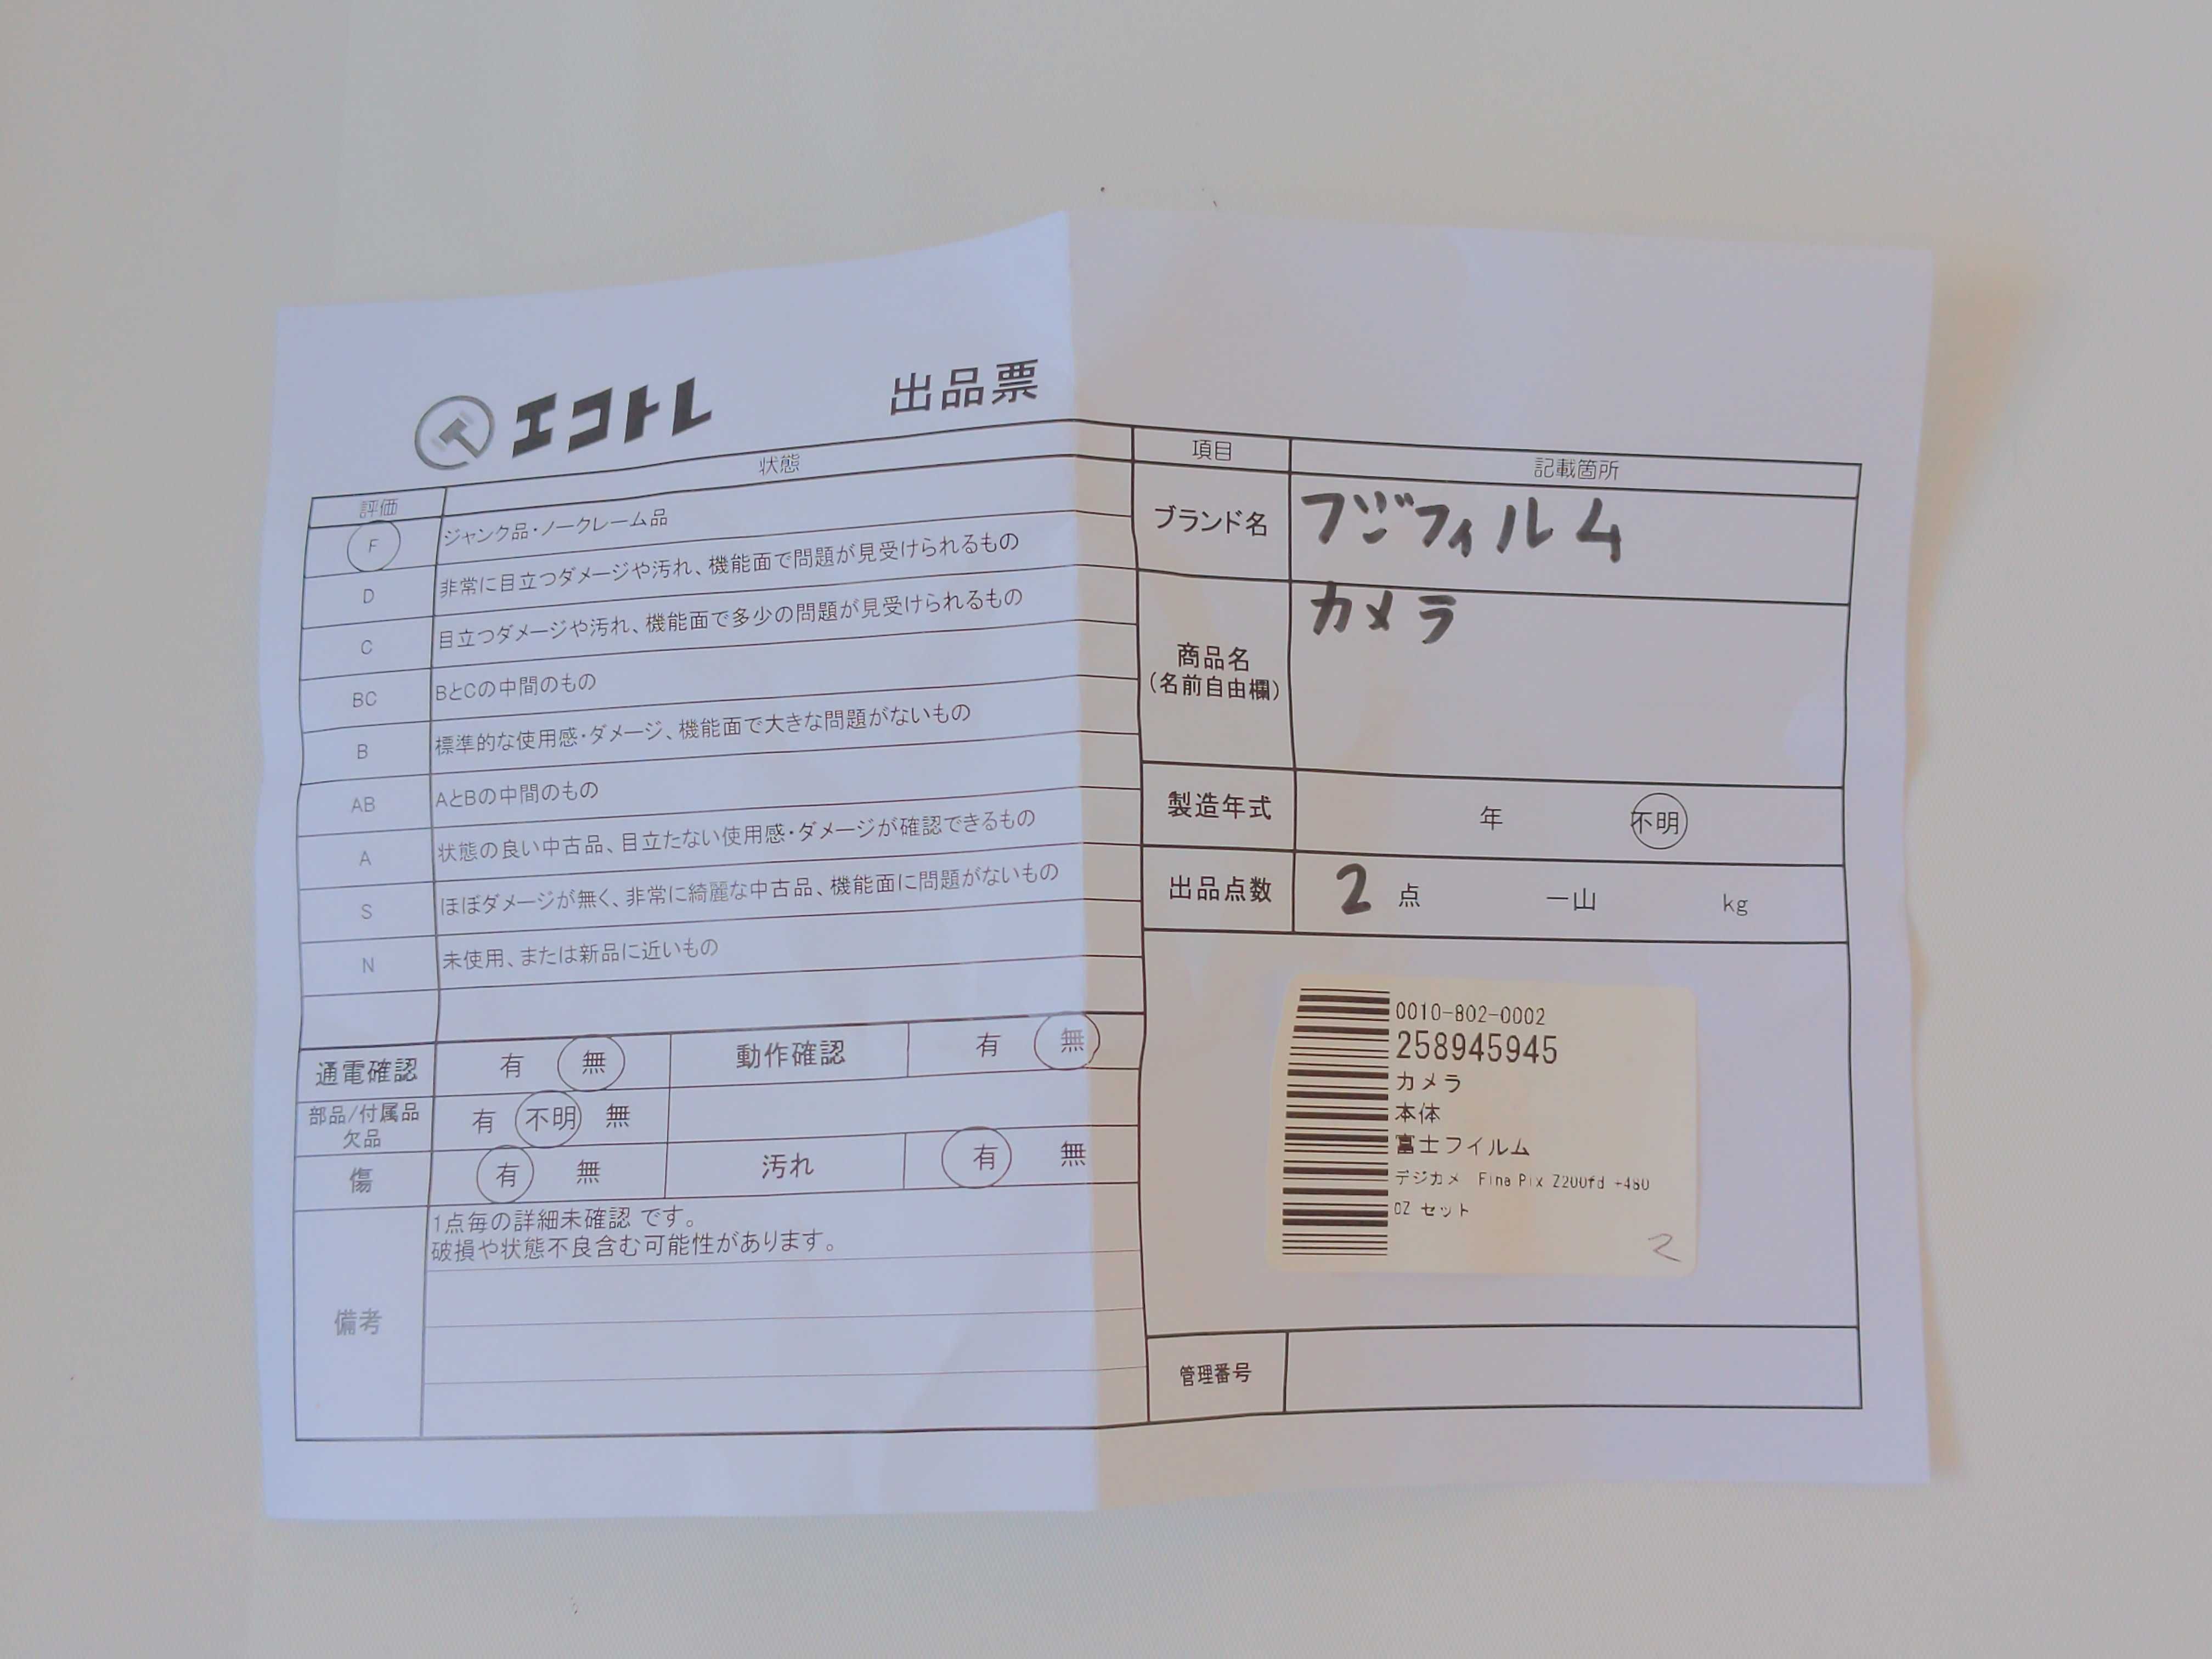 エコトレ 出品票
評価 状態
F ジャンク品・ノークレーム品
D 非常に目立つダメージや汚れ、機能面で問題が見受けられるもの
C 目立つダメージや汚れ、機能面で多少の問題が見受けられるもの
BC BとCの中間のもの
B 標準的な使用感・ダメージ、機能面で大きな問題がないもの
AB AとBの中間のもの
A 状態の良い中古品、目立たない使用感・ダメージが確認できるもの
S ほぼダメージが無く、非常に綺麗な中古品、機能面に問題がないもの
N 未使用、または新品に近いもの
通電確認 有 無 動作確認 有 無
部品/付属品
欠品 有 不明 無
傷 有 無 汚れ 有 無
備考
1点毎の詳細未確認 です。
破損や状態不良含む可能性があります。
項目 記載箇所
ブランド名 フジフィルム
商品名
(名前自由欄) カメラ
製造年式 年 不明
出品点数 2 点 一山 kg
0010-802-0002
258945945
カメラ
本体
富士フイルム
デジカメ Fine Pix Z200fd +480
0Z セット
2
管理番号